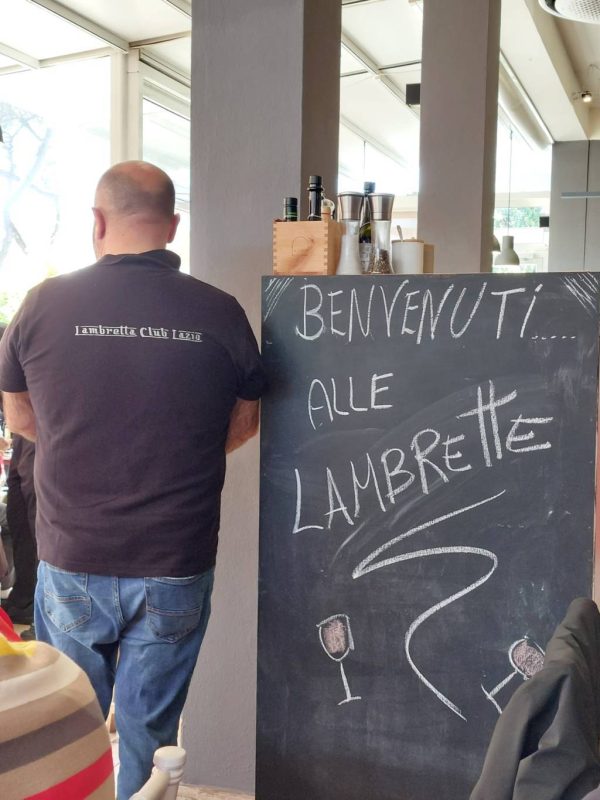 Lambretta Club Lazio
BENVENUTi.....
ALLE
LAMBREttE